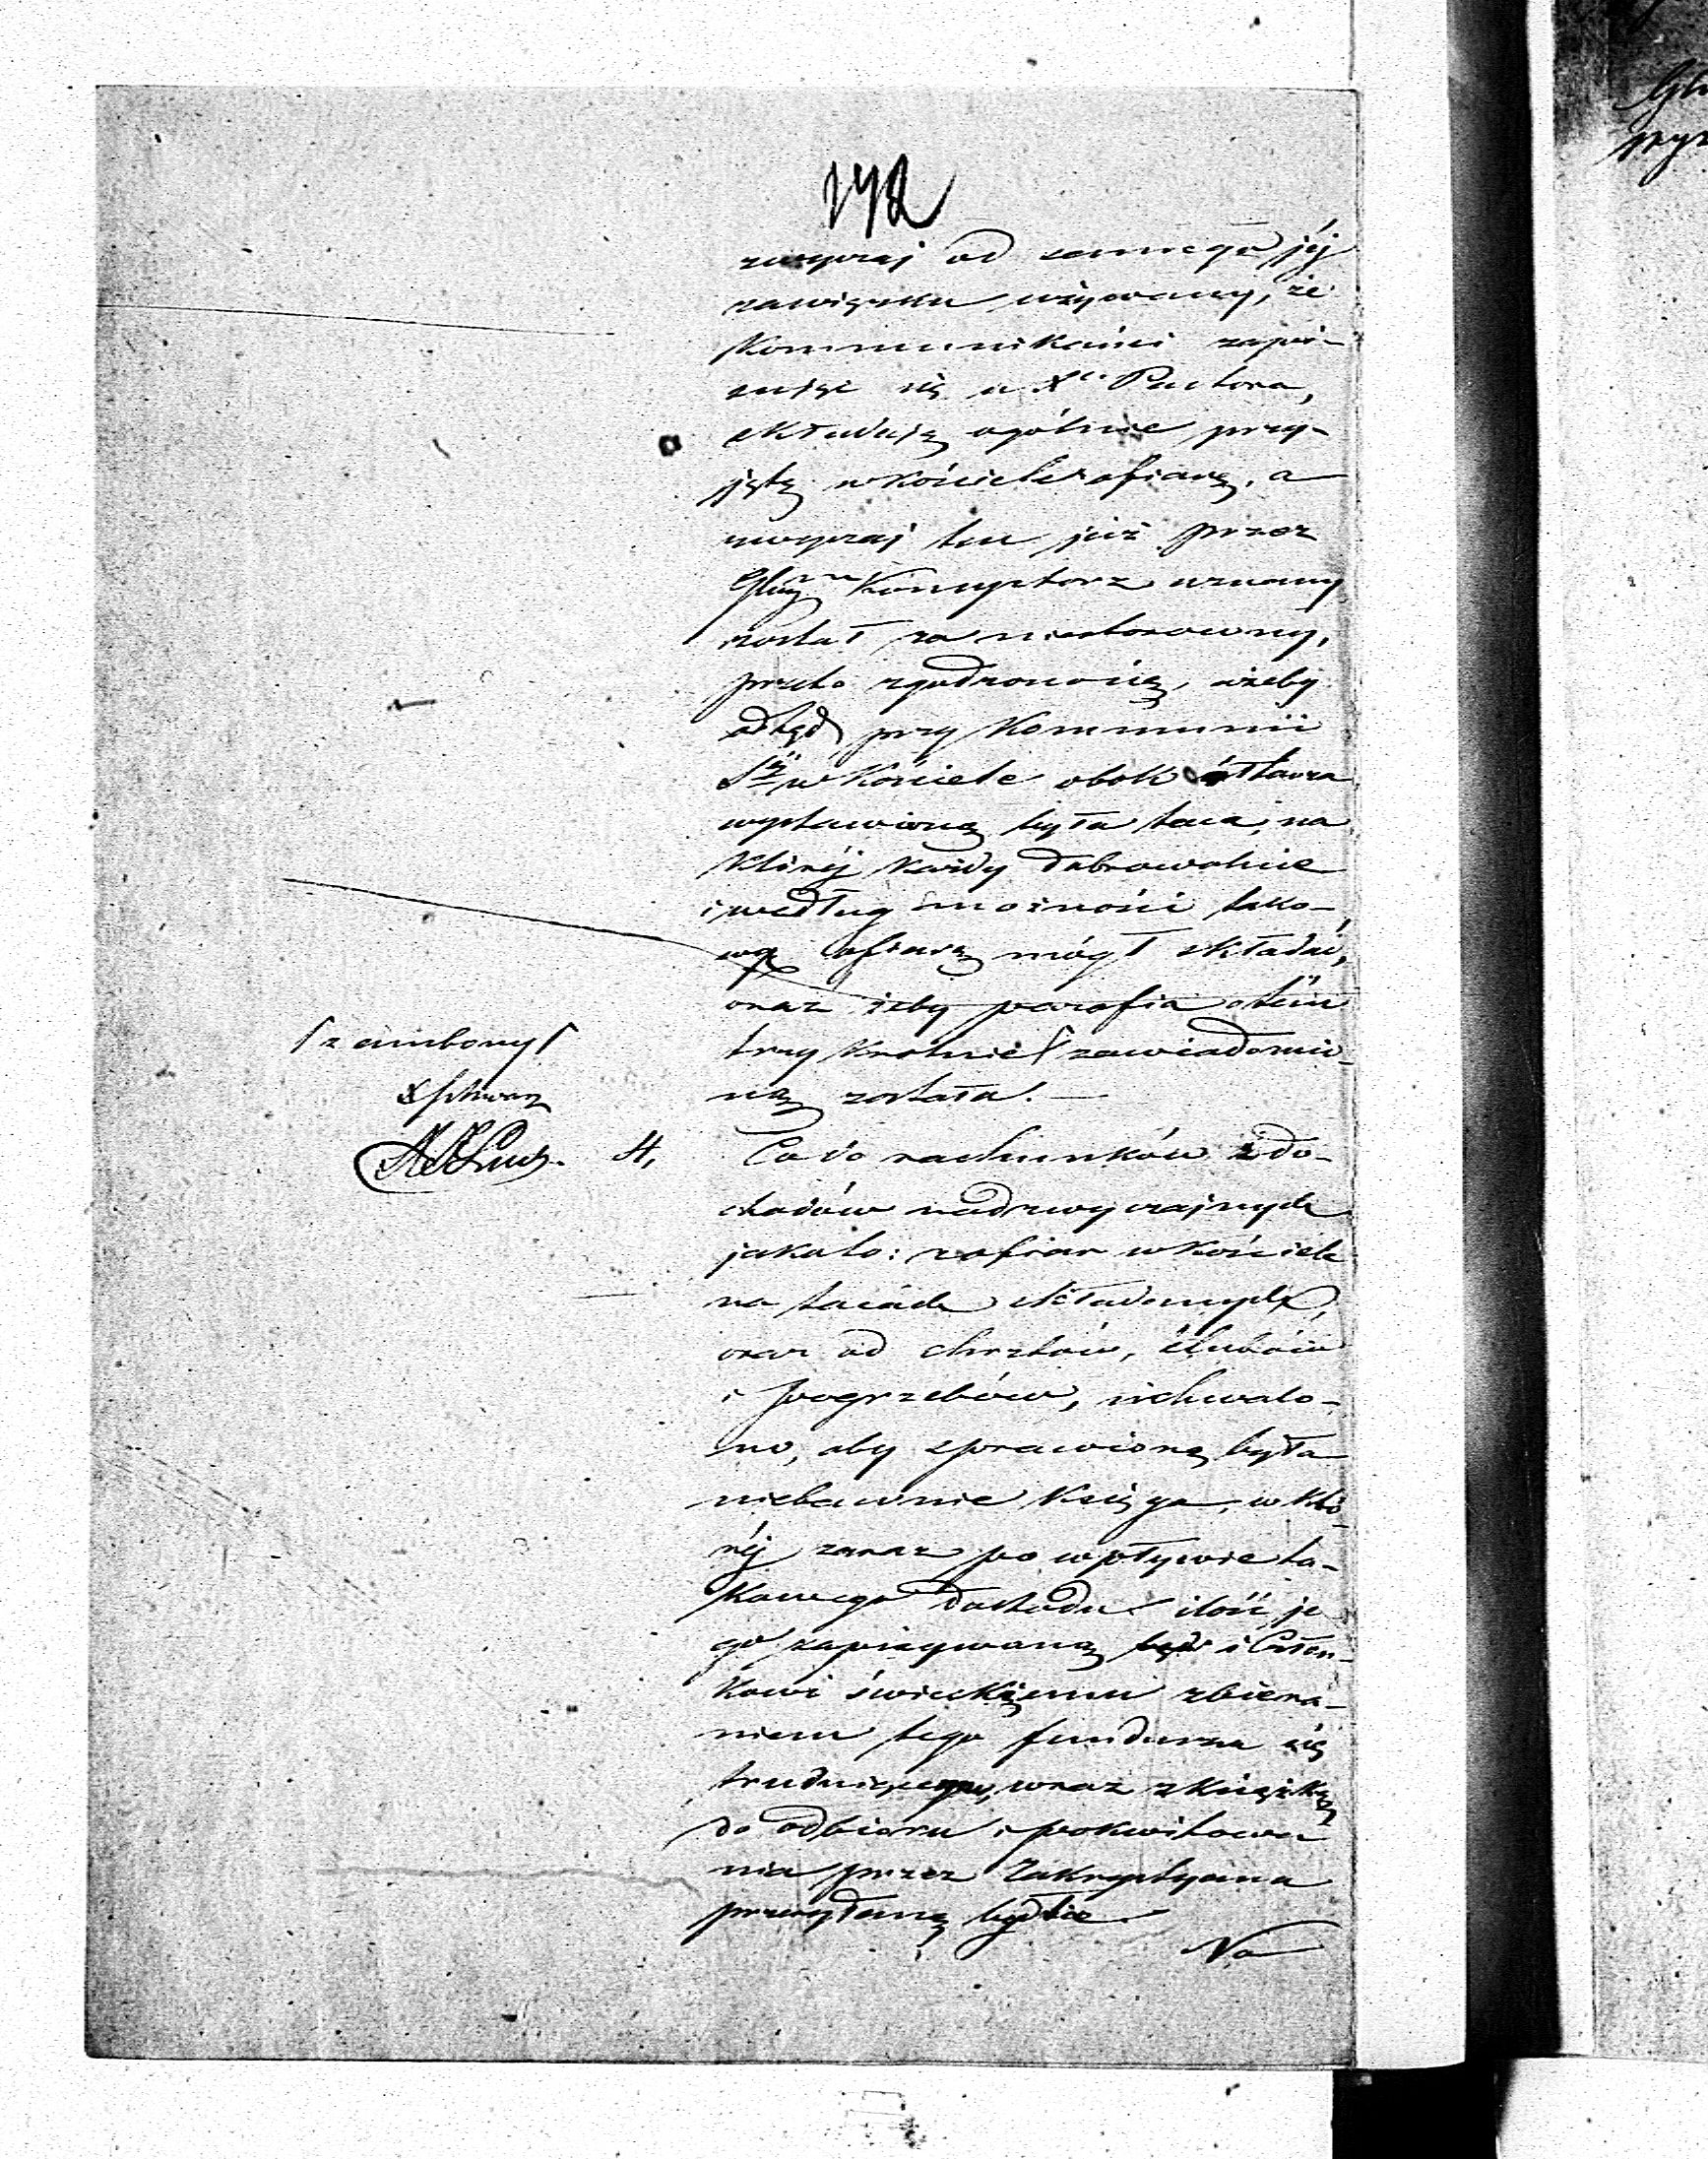 172
zwyczaj od samego jéj
zawiązku używany, że
Kommunikańci zapi-
sując się u Xa Pastora,
składają ogólnie przy-
jętą w Kościele ofiarę, a
zwyczaj ten już przez
Konsystorz uznany
został za niestosowny,
przeto zgodzono się, ażeby
odtąd przy Kommunii
Stéj w Kościele obok ołtarza
wystawioną była taca, na
któréj każdy dobrowolnie
i według możności tako-
wą ofiarę mógł składać,
oraz żeby parafia o tém
trzykrotnie ſ zawiadomio-
ną została. —
ſ z ambony ſ
4, Co do rachunków z do-
chodów nadzwyczajnych
jakoto: z ofiar w Kościele
na tacach składanych,
oraz od chrztów, ślubów
i pogrzebów, uchwalo-
no, aby sprawioną była
niebawnie Księga, w któ-
réj zaraz po wpływie ta-
kowego dochodu ilość je
go zapisywaną będzie i Człon-
kowi świeckiemu zbiera-
niem tego funduszu się
trudniącemu, wraz z książką
do odbioru i pokwitowa
nia przez Zakrystyana
przesyłaną będzie.
Na